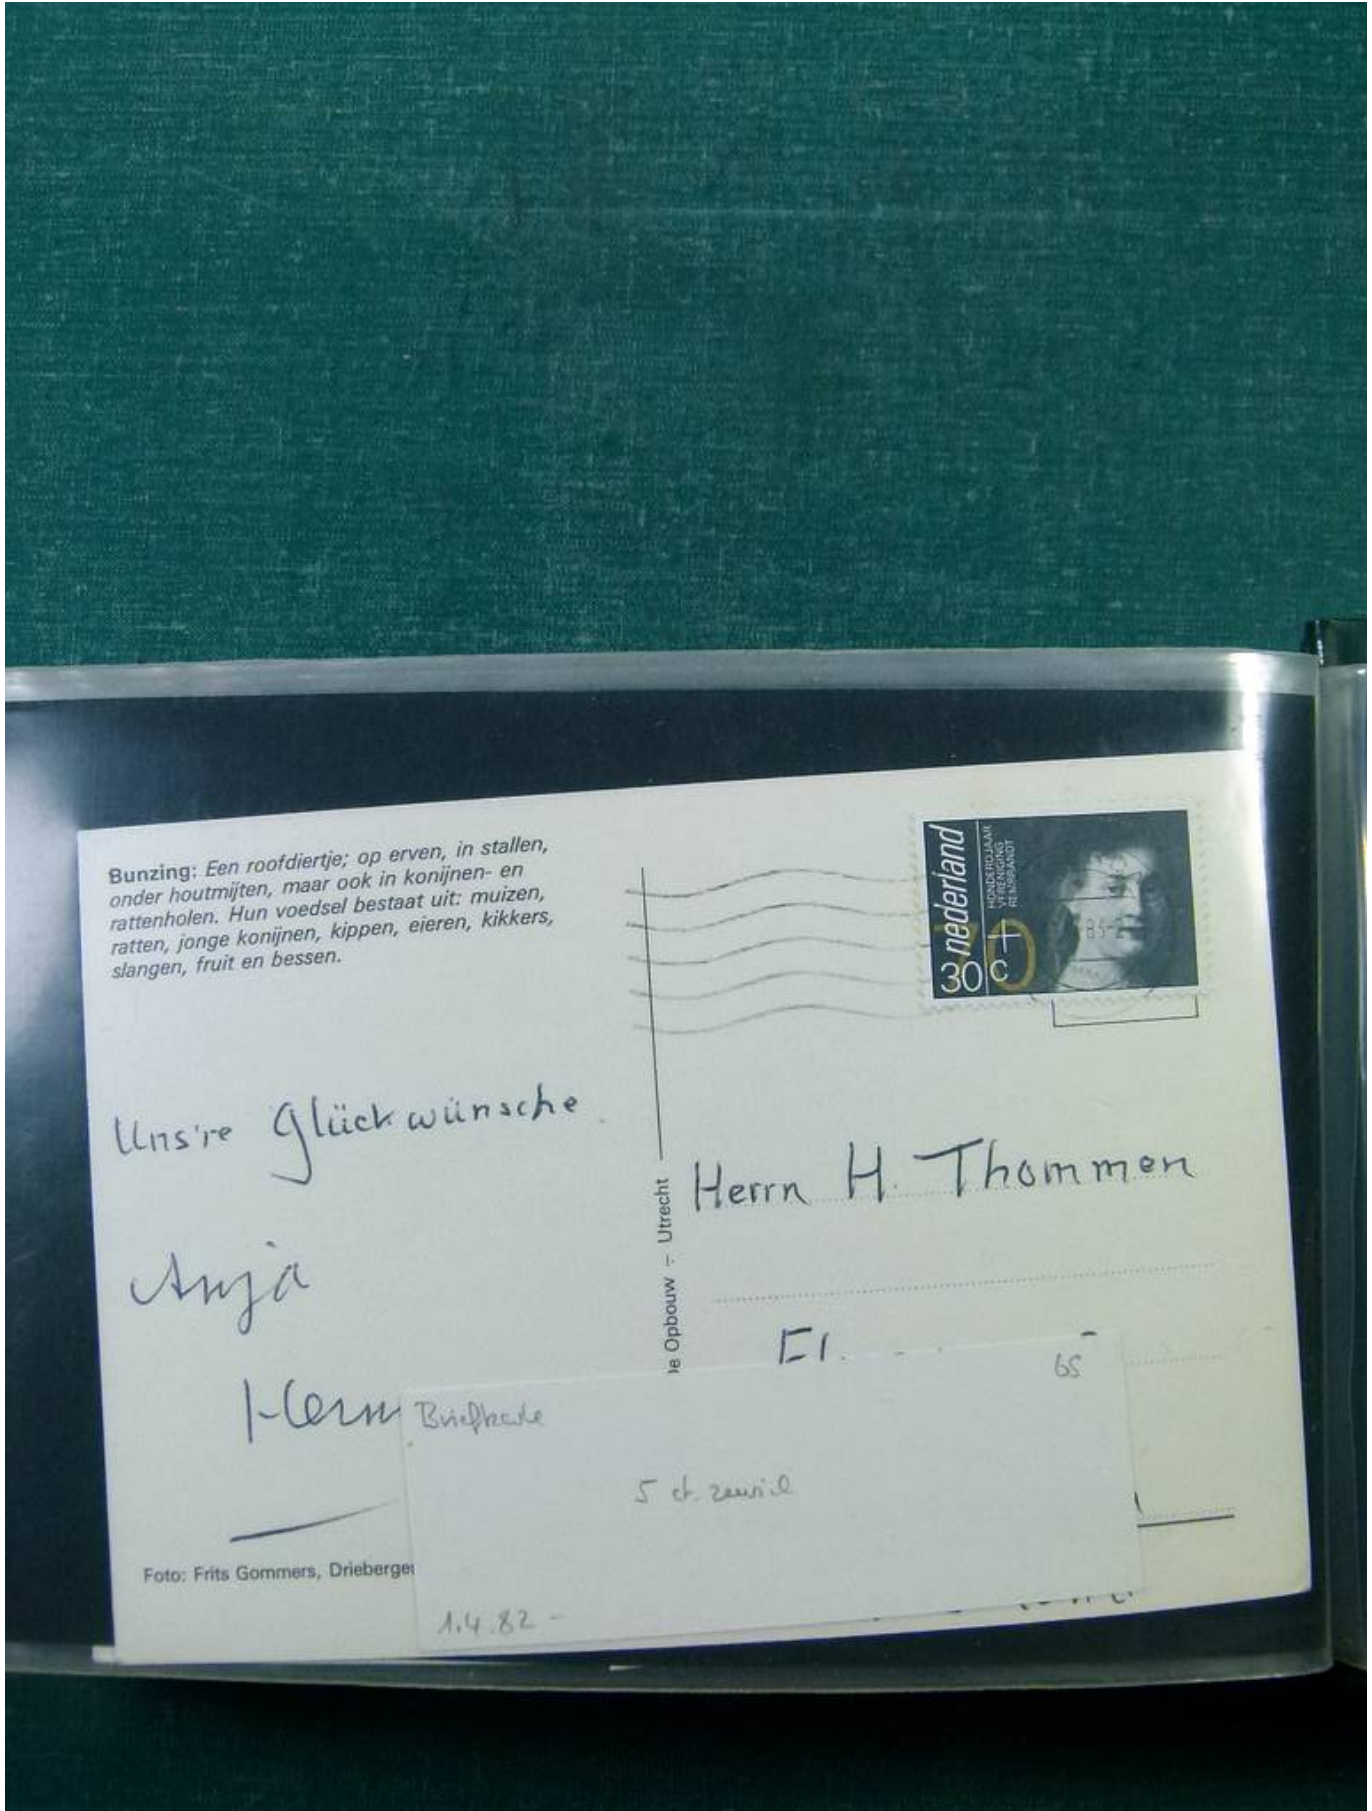 Bunzing: Een roofdiertje; op erven, in stallen,
onder houtmijten, maar ook in konijnen- en
rattenholen. Hun voedsel bestaat uit: muizen,
ratten, jonge konijnen, kippen, eieren, kikkers,
slangen, fruit en bessen.
nederland
HONDERDJAAR
VERENIGING
REMBRANDT
30 c
+
Uns're Glückwünsche
Anja
Foto: Frits Gommers,
Opbouw - Utrecht
Herrn H. Thommen
65
5 ct.
1.4.82 -